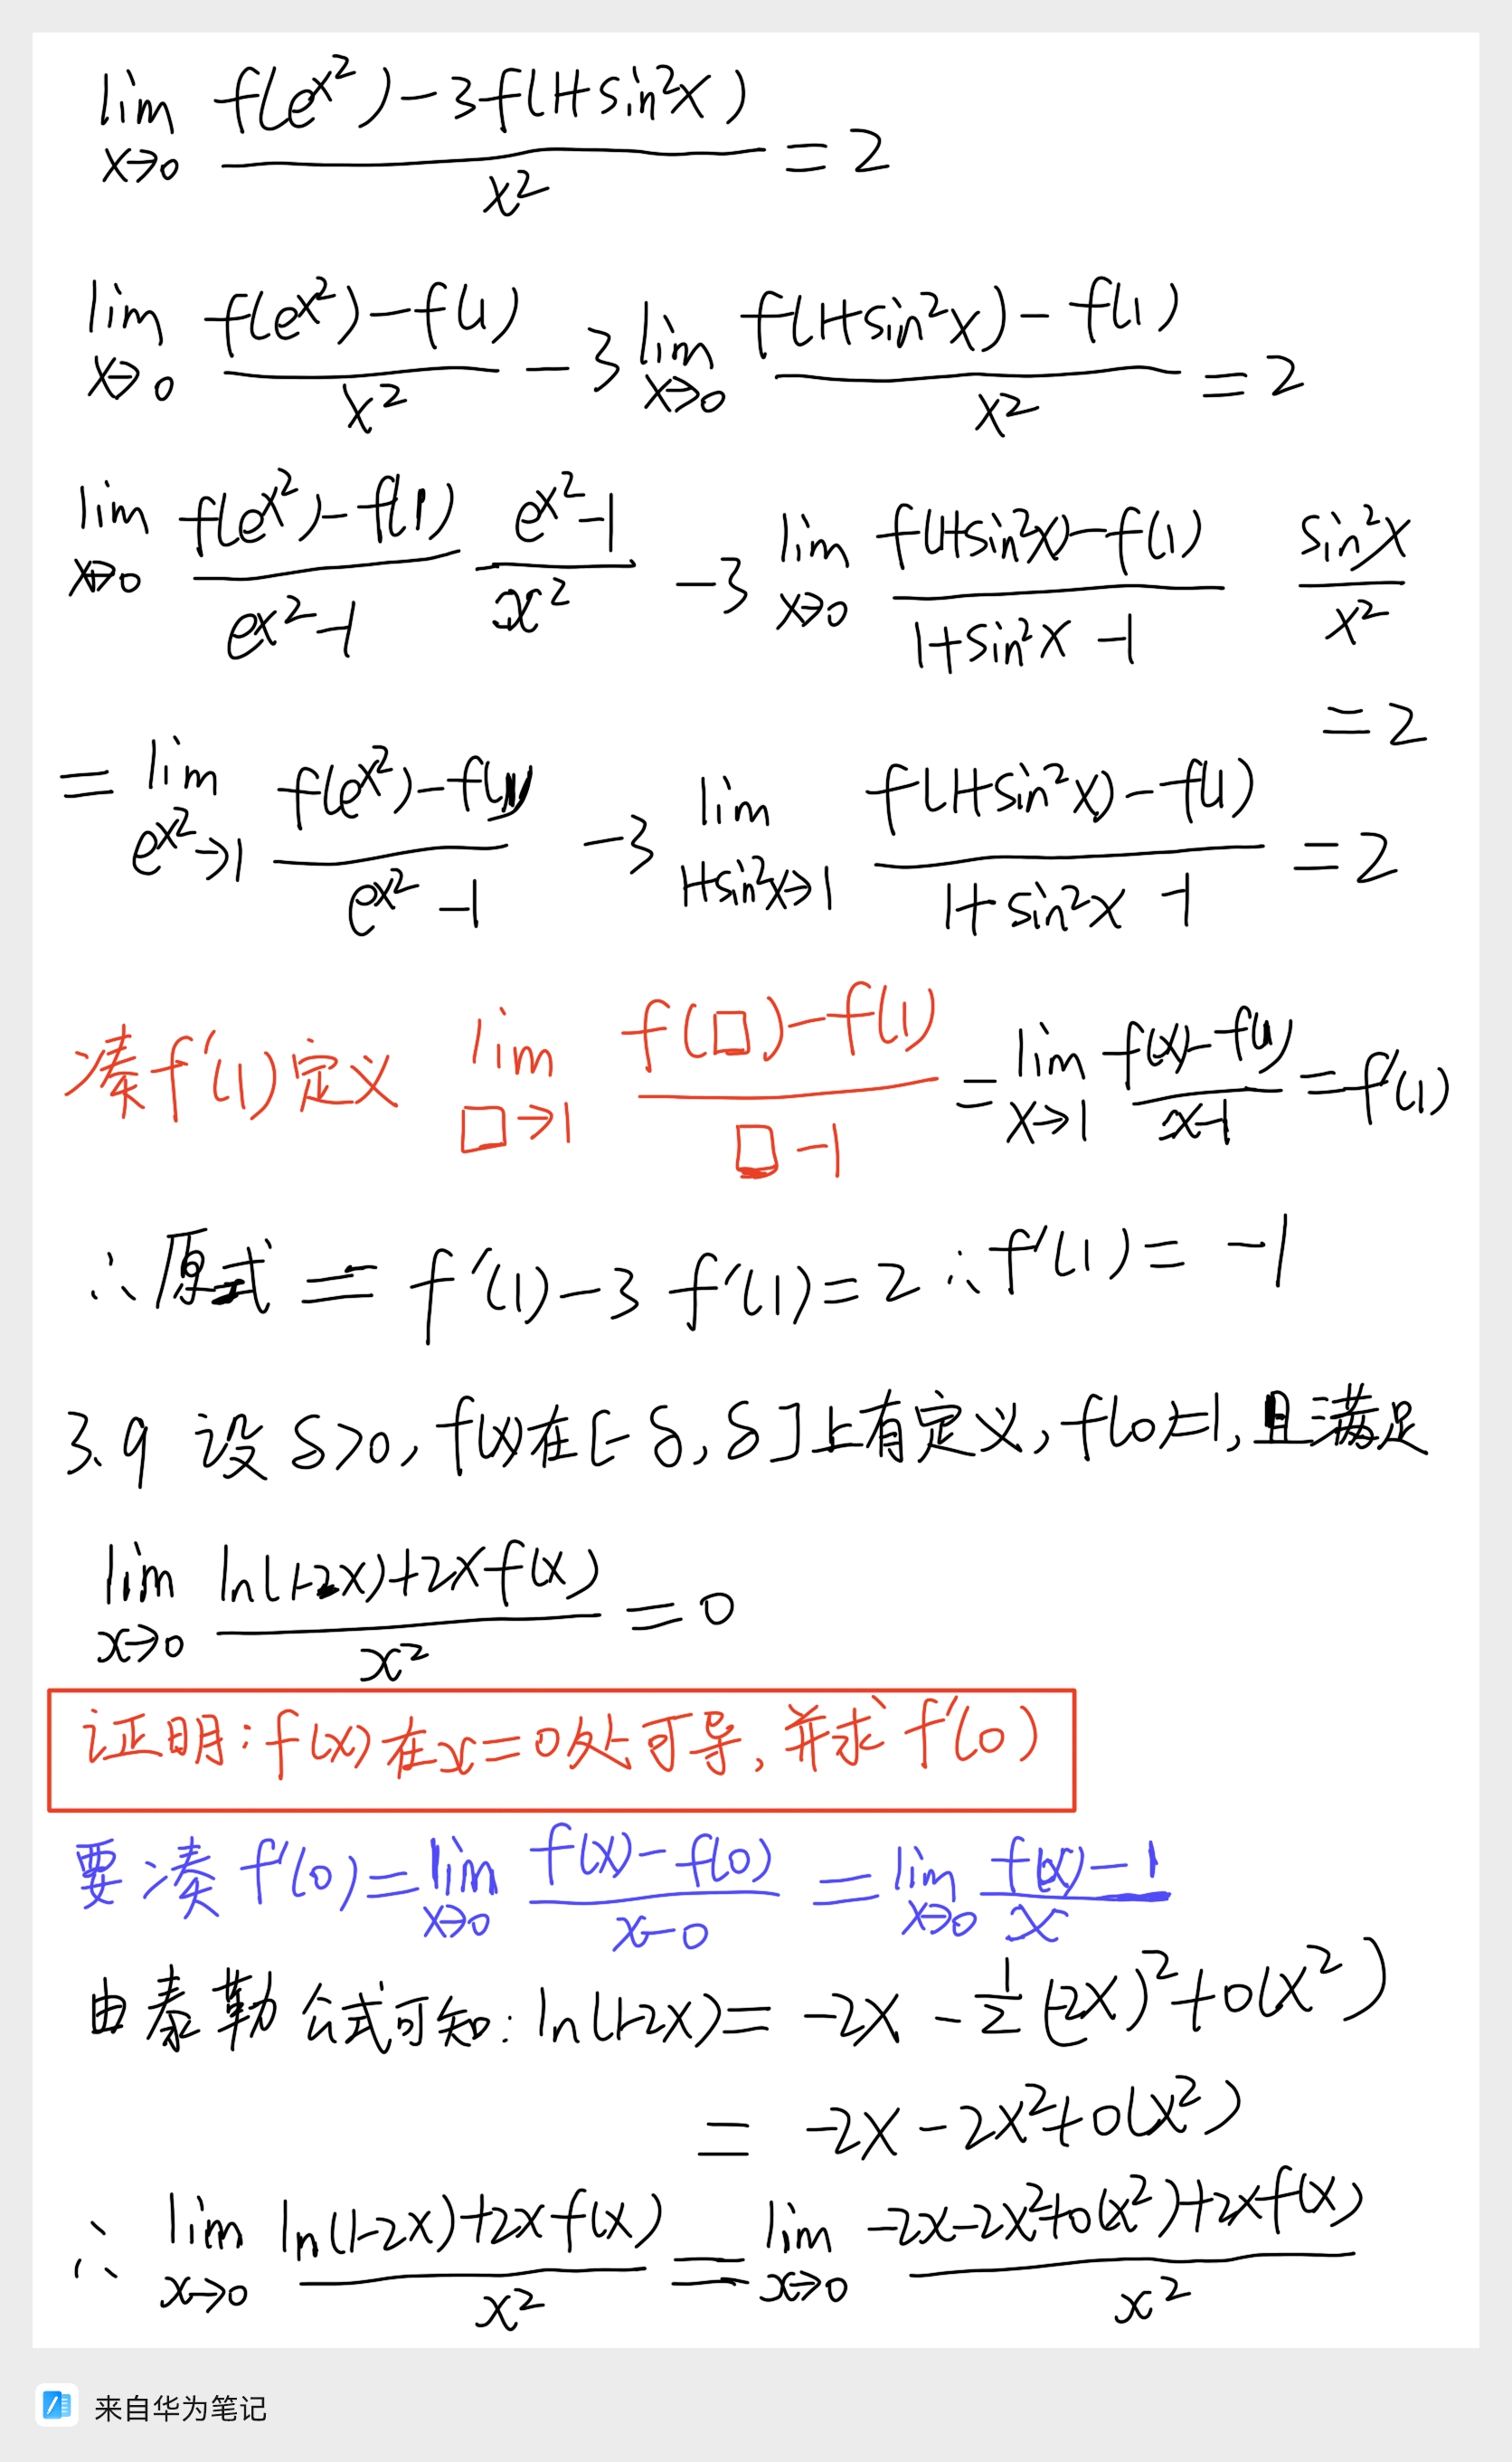 lim x→0 (f(e^(x²)) - 3f(1+sin²x)) / x² = 2
lim x→0 (f(e^(x²)) - f(1)) / x² - 3 lim x→0 (f(1+sin²x) - f(1)) / x² = 2
lim x→0 (f(e^(x²)) - f(1)) / (e^(x²) - 1) (e^(x²) - 1) / x² - 3 lim x→0 (f(1+sin²x) - f(1)) / (1+sin²x - 1) sin²x / x²
= 2
= lim e^(x²)→1 (f(e^(x²)) - f(1)) / (e^(x²) - 1) - 3 lim 1+sin²x→1 (f(1+sin²x) - f(1)) / (1+sin²x - 1) = 2
凑f'(1)定义 lim □→1 (f(□) - f(1)) / (□ - 1) = lim x→1 (f(x) - f(1)) / (x-1) = f'(1)
∴原式 = f'(1) - 3f'(1) = 2 ∴ f'(1) = -1
3.9 设δ>0, f(x)在[-δ, δ]上有定义, f(0)=1, 且满足
lim x→0 (ln(1-2x)+2xf(x)) / x² = 0
证明: f(x)在x=0处可导, 并求f'(0)
要凑 f'(0) = lim x→0 (f(x) - f(0)) / (x-0) = lim x→0 (f(x) - 1) / x
由泰勒公式可知: ln(1-2x) = -2x - 1/2 (2x)² + o(x²)
= -2x - 2x² + o(x²)
∴ lim x→0 (ln(1-2x)+2xf(x)) / x² = lim x→0 (-2x-2x²+o(x²)+2xf(x)) / x²
来自华为笔记